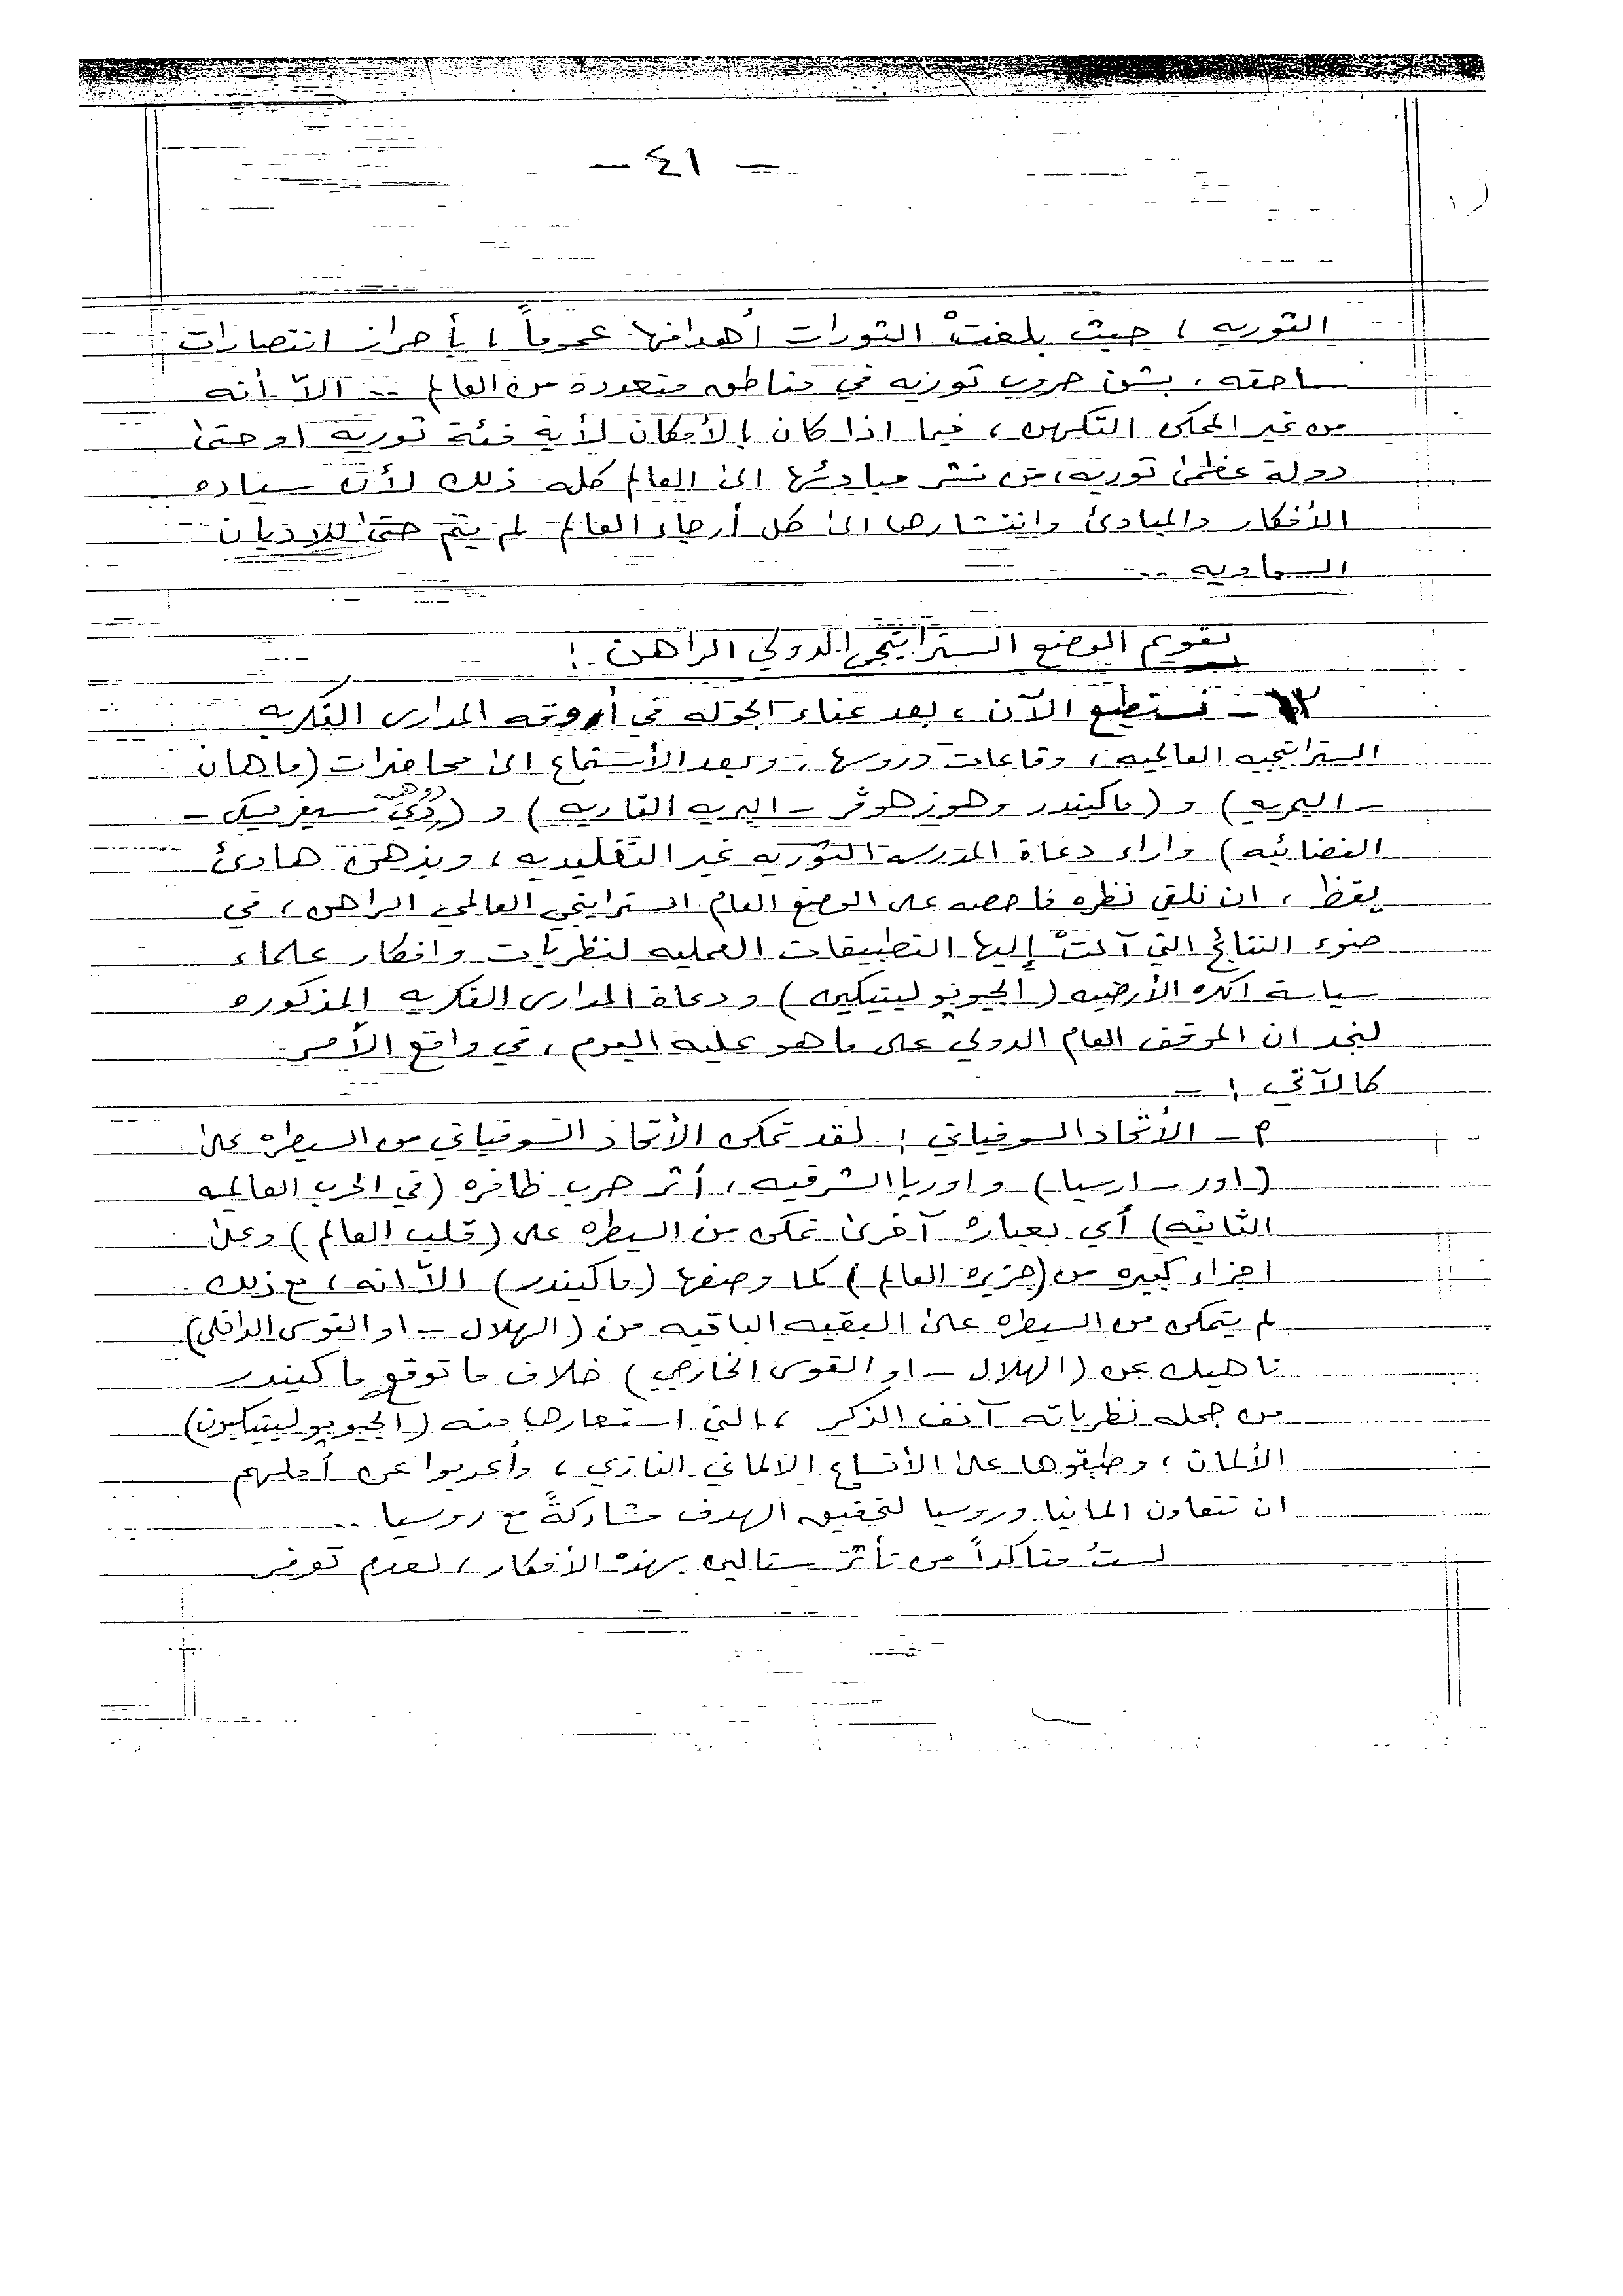 - ٤١ -
الثوريه ، حيث بلغتْ الثورات أهدافها عموماً ، بأحراز انتصارات
ساحقه ، بشن حروب ثوريه في مناطق متعددة من العالم .. الاّ أنه
من غير الممكن التكهن ، فيما اذا كان بالأمكان لأية فئة ثورية او حتىٰ
دولة عظمىٰ ثورية ، من نشر مبادئها الىٰ العالم كله ذلك لأن سياده
الأفكار والمبادئ وانتشارها الىٰ كل أرجاء العالم لم يتم حتىٰ للاديان
السماويه ..
تقويم الوضع الستراتيجي الدولي الراهن :
١٢ - نستطيع الآن ، بعد عناء الجوله في أروقه المدارس الفكريه
الستراتيجيه العالميه ، وقاعات دروسها ، وبعد الأستماع الىٰ محاضرات (ماهان
- البحريه) و (ماكيندر وهوزهوفر - البريه القاريه) و (دي سيفرسكي -
الفضائيه) واراء دعاة المدرسه الثوريه غير التقليديه ، وبذهن هادئ
يقظ ، ان نلقي نظره فاحصه على الوضع العام الستراتيجي العالمي الراهن ، في
ضوء النتائج التي آلتْ إليها التطبيقات العمليه لنظريات وافكار علماء
سياسة الكره الأرضيه (الجيوبوليتيكيين) ودعاة المدارس الفكريه المذكوره
لنجد ان الموقف العام الدولي على ما هو عليه اليوم ، في واقع الأمر
كالآتي : -
م - الأتحاد السوفياتي : لقد تمكن الأتحاد السوفياتي من السيطره علىٰ
(اور - اسيا) واوربا الشرقيه ، أثر حرب ظافره (في الحرب العالميه
الثانيه) أي بعبارة آخرىٰ تمكن من السيطره على (قلب العالم) وعلىٰ
اجزاء كبيره من (جزيره العالم) كما وصفها (ماكيندر) الاّ انه ، مع ذلك
لم يتمكن من السيطره علىٰ البقيه الباقيه من (الهلال - او القوس الداخلي)
ناهيك عن (الهلال - او القوس الخارجي) خلاف ما توقع ماكيندر
من جمله نظرياته آنف الذكر ، التي استعارها منه (الجيوبوليتيكيون)
الألمان ، وطبقوها علىٰ الأتساع الالماني النازي ، وأعربوا عن أملهم
ان تتعاون المانيا وروسيا لتحقيق الهدف مشاركةً مع روسيا ..
لستُ متاكداً من تأثر ستالين بهذه الأفكار ، لعدم توفر